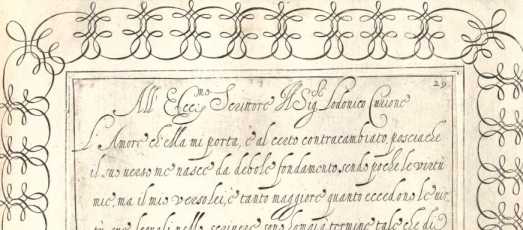 29
All' Ecc.mo Scrittore Il Sig.r Lodovico Curione
L'Amore ch'ella mi porta, è al certo contracambiato, posciache
il suo verso me nasce da debole fondamento, sendo poche le virtù
mie, ma il mio verso lei, è tanto maggiore quanto eccedono le